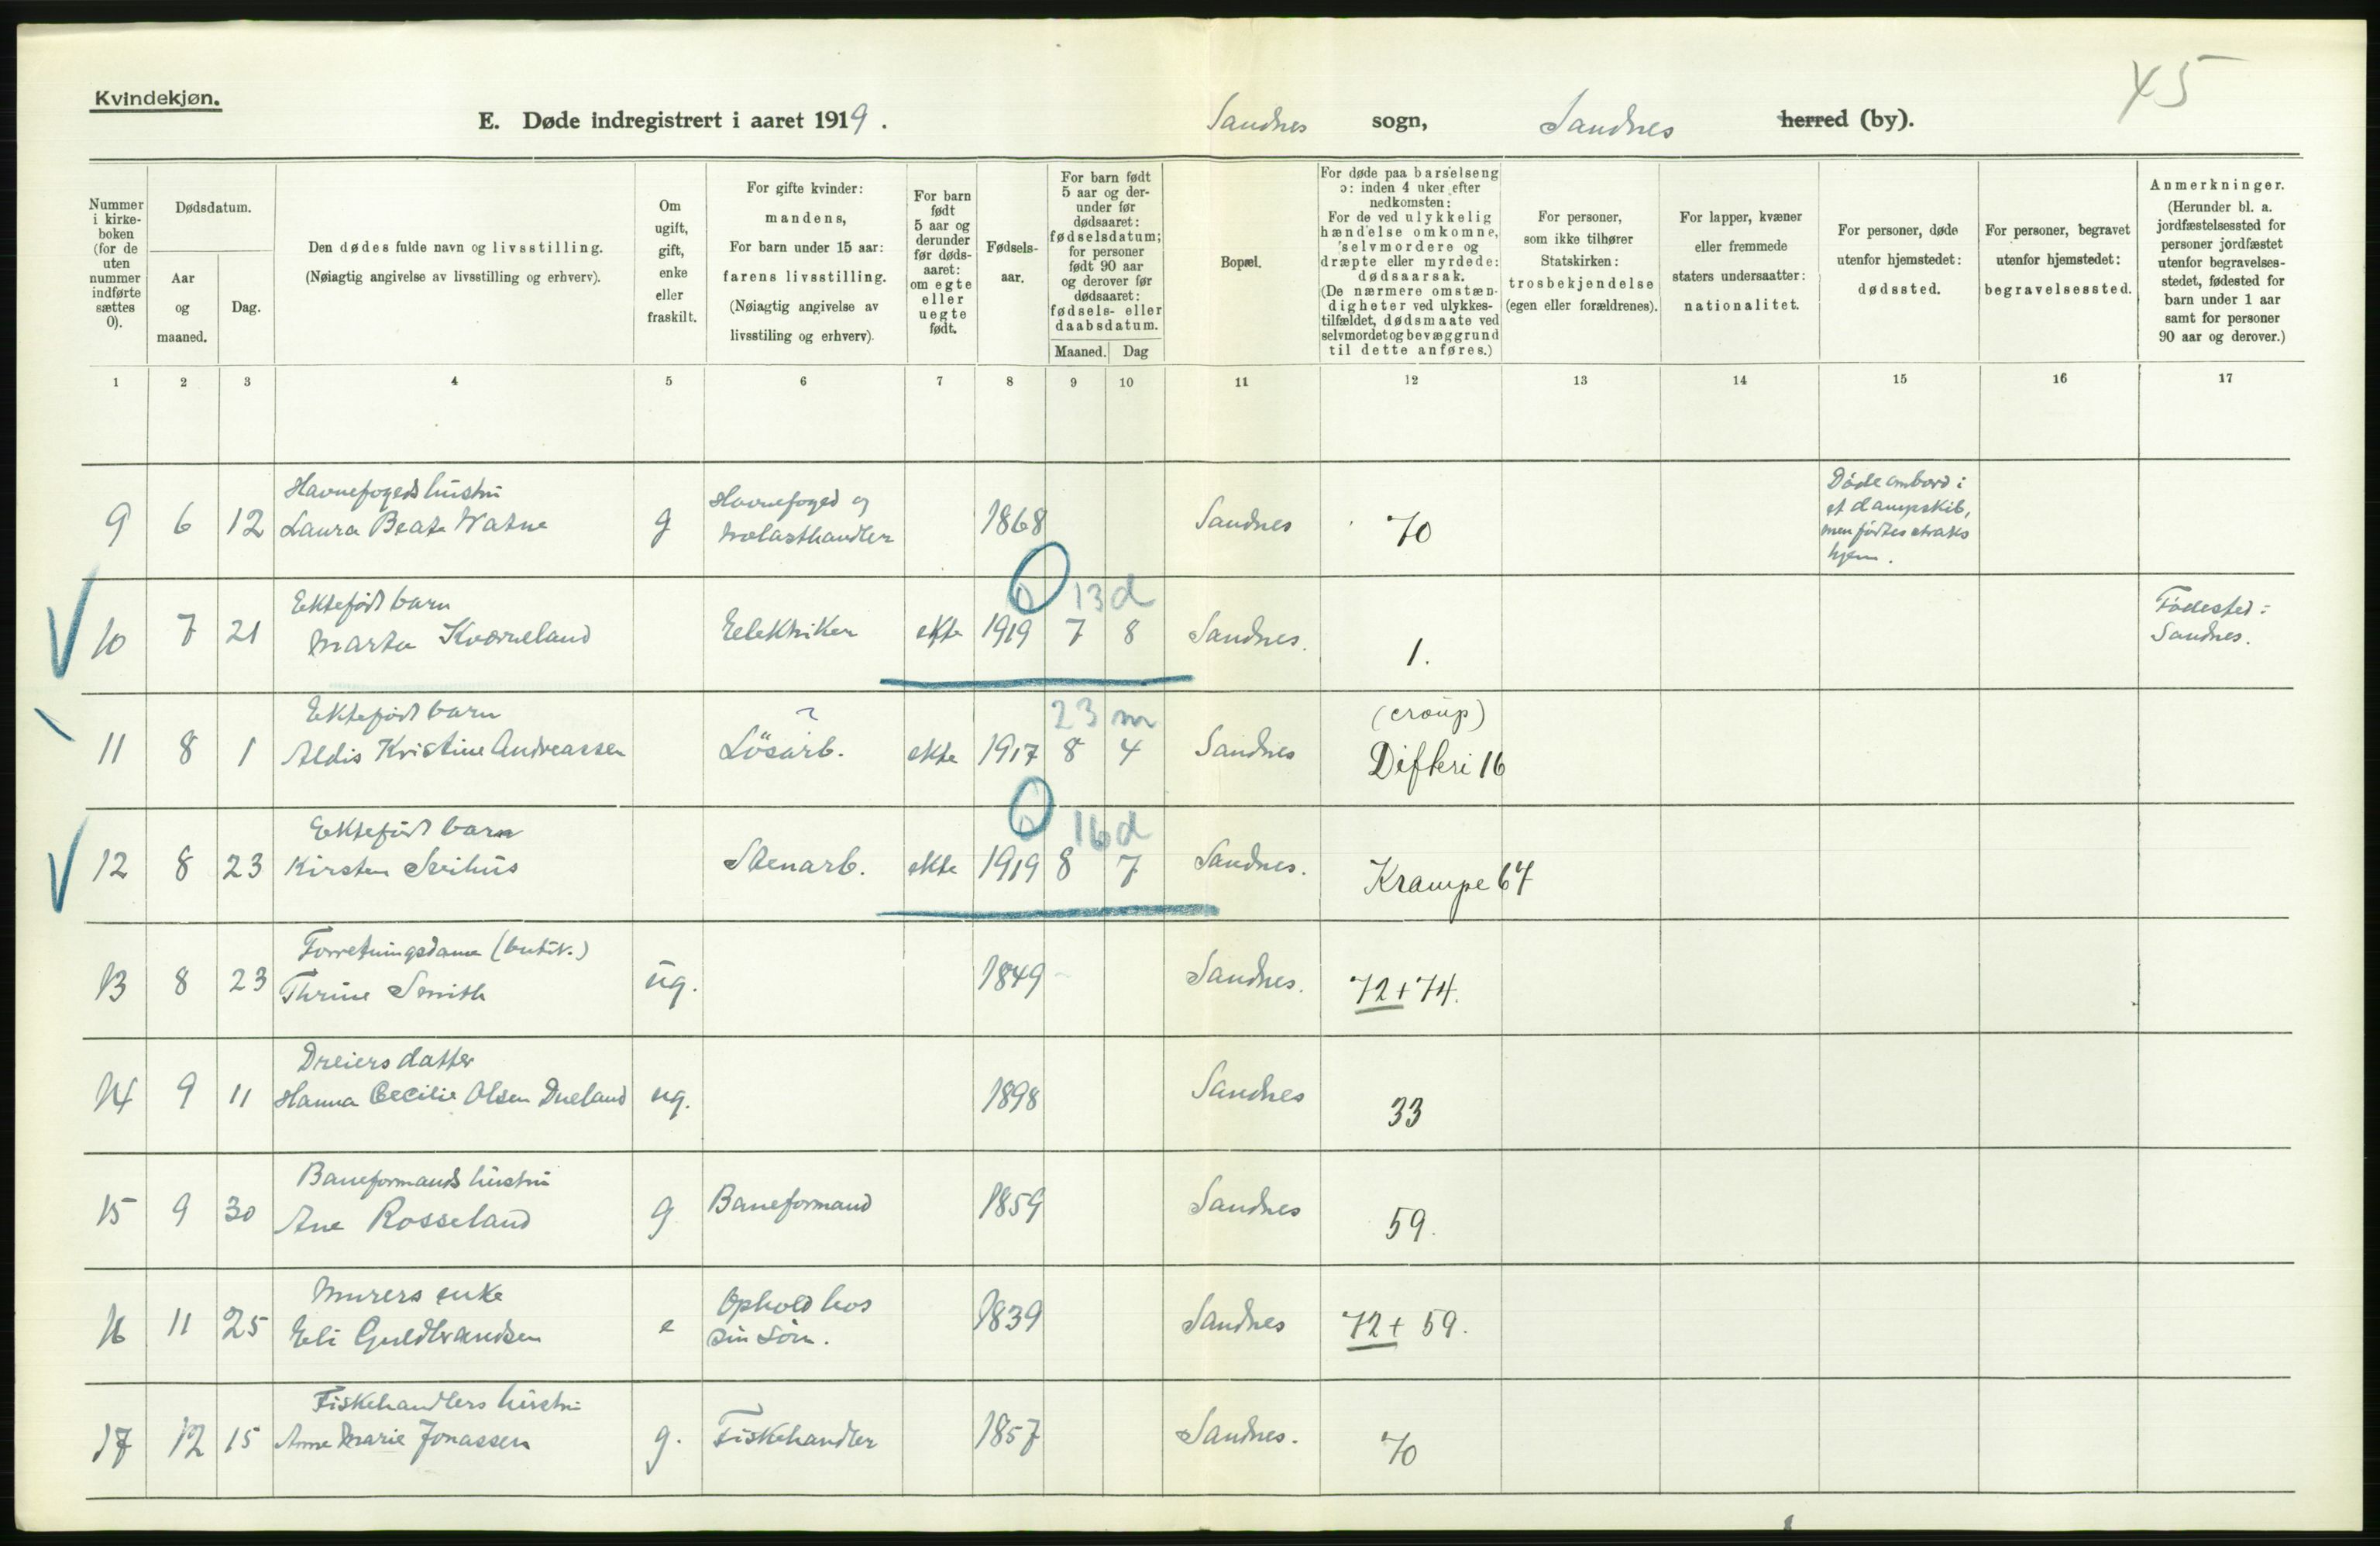 45
Kvindekjøn.
E. Døde indregistrert i aaret 1919. Sandnes sogn, Sandnes herred (by).
Nummer
i kirke-
boken
(for de
uten
nummer
indførte
sættes
0).
Dødsdatum.
Aar
og
maaned.
Dag.
Den dødes fulde navn og livsstilling.
(Nøiagtig angivelse av livsstilling og erhverv).
Om
ugift,
gift,
enke
eller
fraskilt.
For gifte kvinder:
mandens,
For barn under 15 aar:
farens livsstilling.
(Nøiagtig angivelse av
livsstiling og erhverv).
For barn
født
5 aar og
derunder
før døds-
aaret:
om egte
eller
uegte
født.
Fødsels-
aar.
For barn født
5 aar og der-
under før
dødsaaret:
fødselsdatum;
for personer
født 90 aar
og derover før
dødsaaret:
fødsels- eller
daabsdatum.
Maaned. Dag
Bopæl.
For døde paa barselseng
ɔ: inden 4 uker efter
nedkomsten:
For de ved ulykkelig
hændelse omkomne,
selvmordere og
dræpte eller myrdede:
dødsaarsak.
(De nærmere omstæn-
digheter ved ulykkes-
tilfældet, dødsmaate ved
selvmordet og bevæggrund
til dette anføres.)
For personer,
som ikke tilhører
Statskirken:
trosbekjendelse
(egen eller forældrenes).
For lapper, kvæner
eller fremmede
staters undersaatter:
nationalitet.
For personer, døde
utenfor hjemstedet:
dødssted.
For personer, begravet
utenfor hjemstedet:
begravelsessted.
Anmerkninger.
(Herunder bl. a.
jordfæstelsessted for
personer jordfæstet
utenfor begravelses-
stedet, fødested for
barn under 1 aar
samt for personer
90 aar og derover.)
1 2 3 4 5 6 7 8 9 10 11 12 13 14 15 16 17
Havnefogeds hustru Havnefoged og Døde ombord i
9 6 12 Laura Beate Watne g 1868 Sandnes 70 et dampskib,
men førtes straks
hjem.
Ektefødt barn 0 13 d Fødested:
10 7 21 Marta Kverneland Eelektriker ekte 1919 7 8 Sandnes. 1. Sandnes.
Ektefødt barn 23 m (croup)
11 8 1 Aldis Kristine Andreassen Løsarb. ekte 1917 8 4 Sandnes Difteri 16
Ektefødt barn 0 16 d
12 8 23 Kirsten Stenarb. ekte 1919 8 7 Sandnes. Krampe 64
Forretningsdame (butik.)
13 8 23 Thrine Smith ug. 1849 Sandnes. 72 + 74.
Dreiers datter
14 9 11 Hanna Cecilie Olsen Dueland ug. 1898 Sandnes 33
Baneformands hustru
15 9 30 Ane Rosseland g Baneformand 1859 Sandnes 59.
Murers enke Ophold hos
16 11 25 Eli Guldbrandsen e sin søn. 1839 Sandnes 72 + 59.
Fiskehandlers hustru
17 12 15 Anne Marie Jonassen g. Fiskehandler 1857 Sandnes. 70